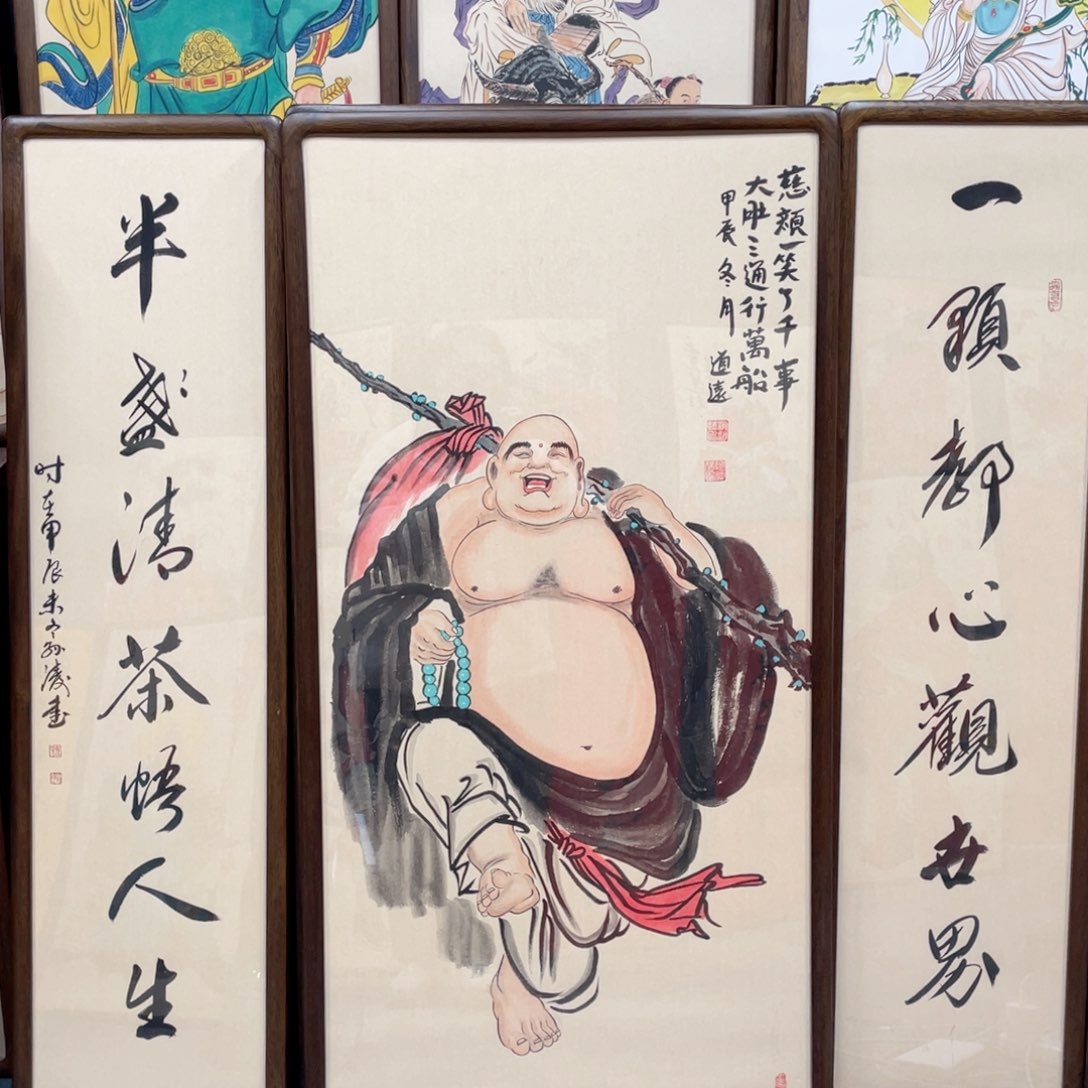 一顆静心觀世界
慈颜一笑了千事
大肚三通行萬船
甲辰冬月 道遠
半盏清茶悟人生
时在甲辰